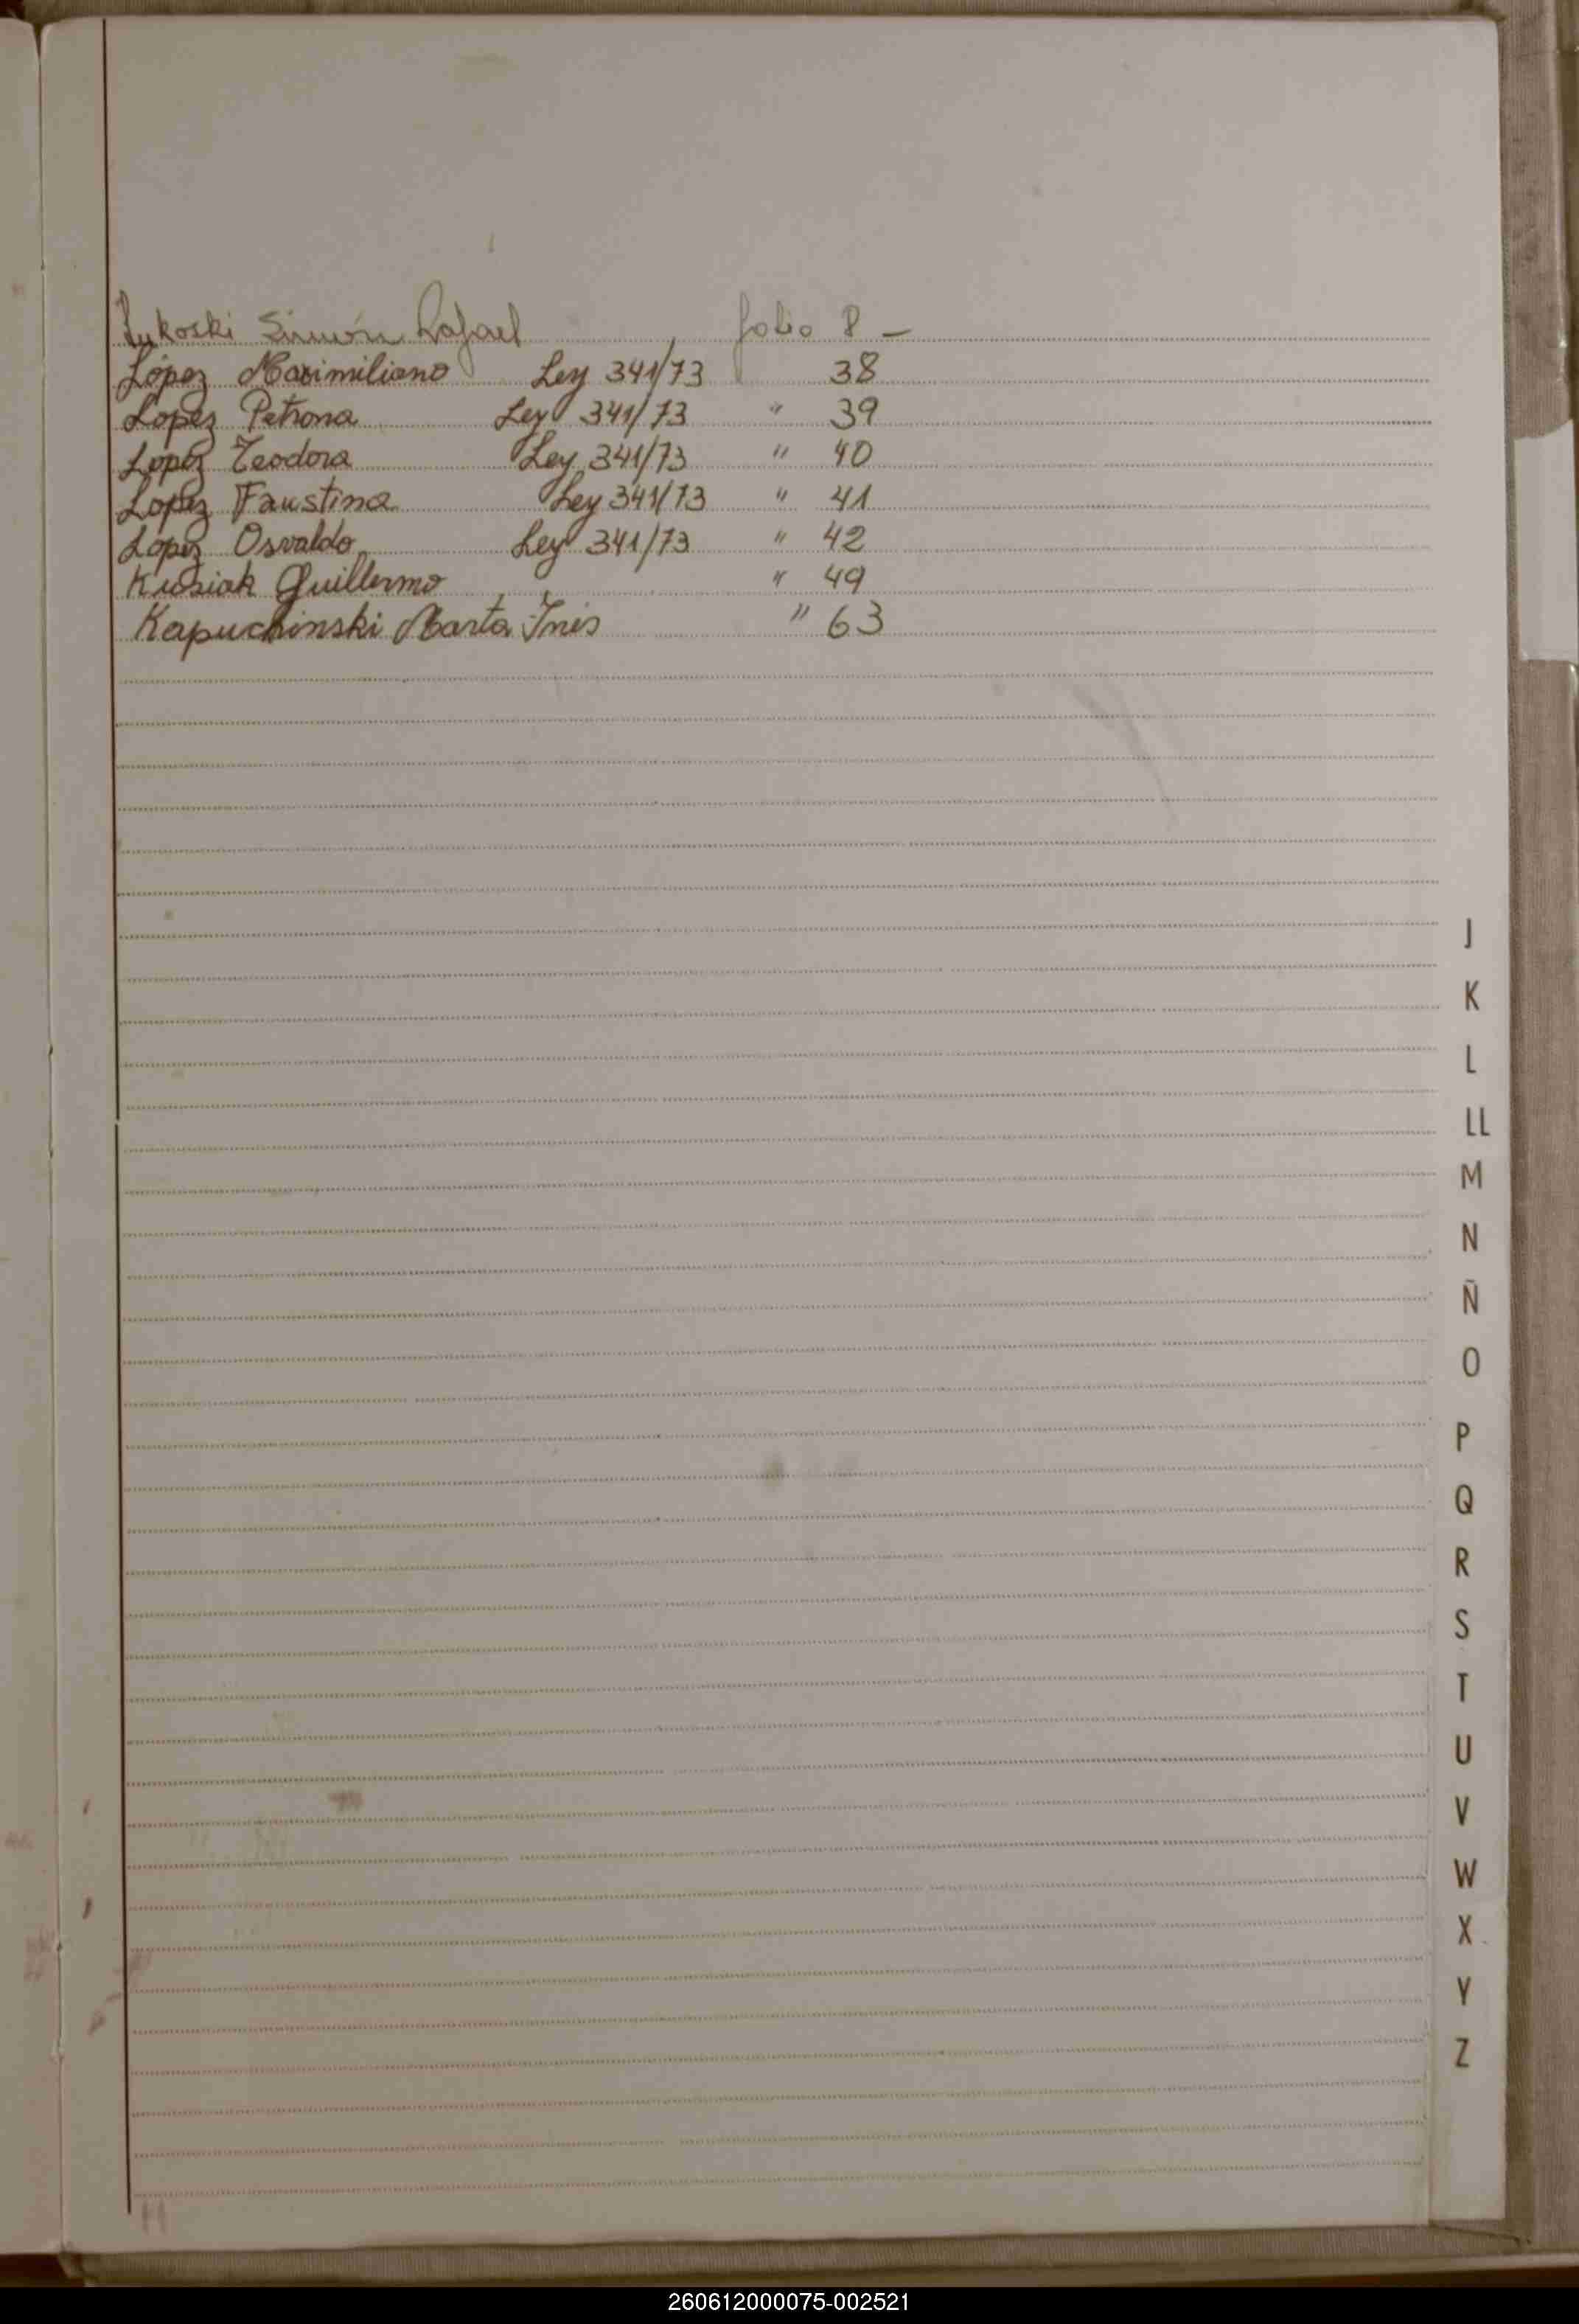 Lukoski Simón Rafael folio 8 -
López Maximiliano Ley 341/73 38
Lopez Petrona Ley 341/73 " 39
Lopez Teodora Ley 341/73 " 40
Lopez Faustina Ley 341/73 " 41
Lopez Osvaldo Ley 341/73 " 42
Kusiak Guillermo " 49
Kapuchinski Marta Inés " 63
J
K
L
LL
M
N
Ñ
O
P
Q
R
S
T
U
V
W
X
Y
Z
260612000075-002521